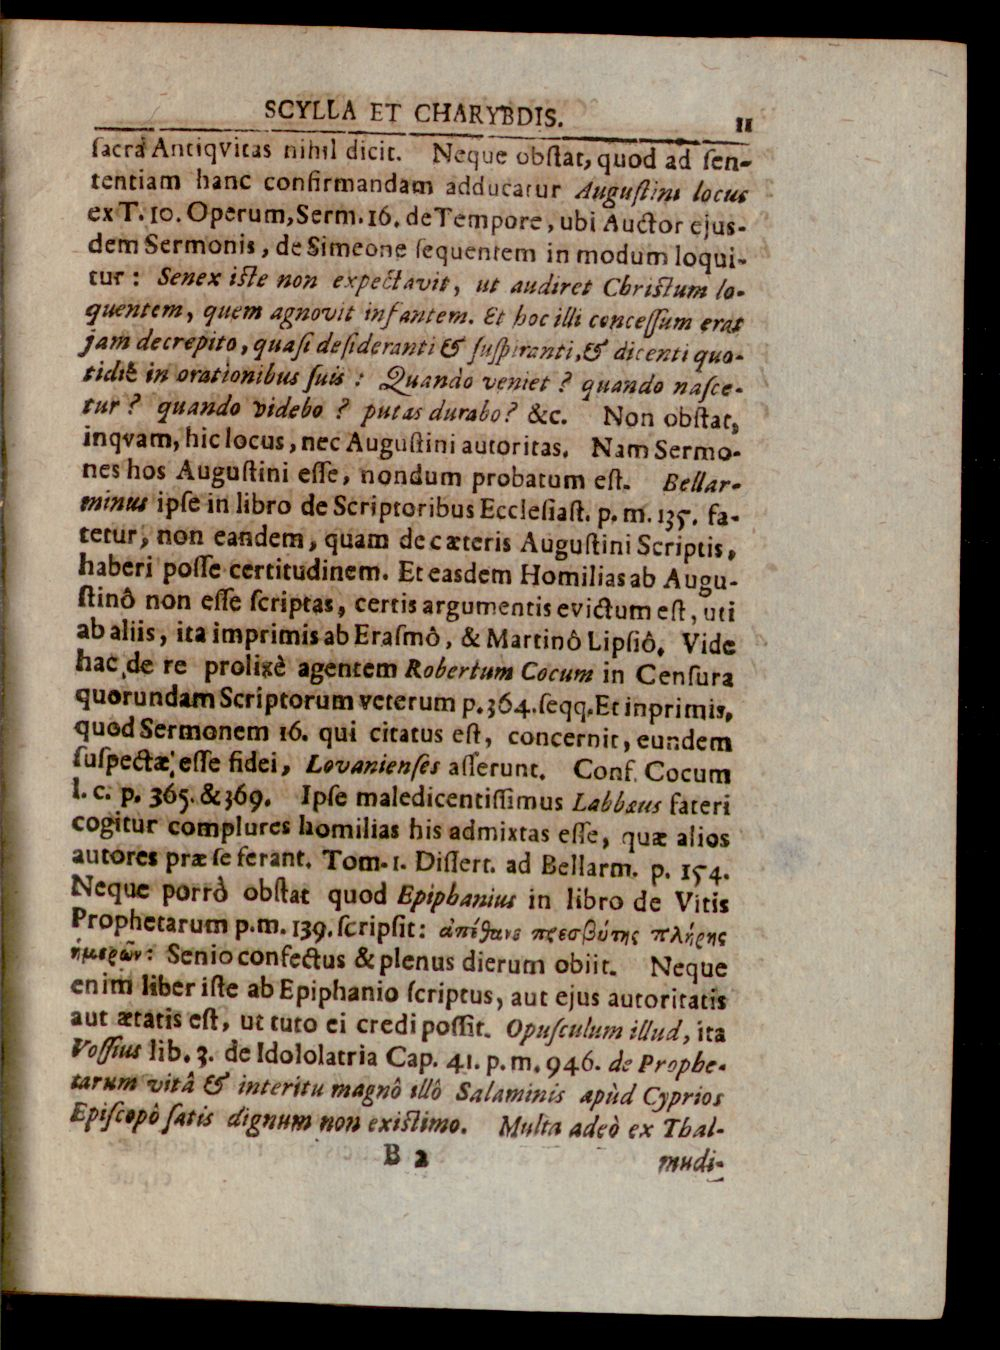 SCYLLA ET CHARYBDIS. 11
ſacrâ Antiqvitas nihil dicit. Neque obſtat, quod ad ſen-
tentiam hanc confirmandam adducatur Auguſtini locus
ex T. 10. Operum, Serm. 16. de Tempore, ubi Auctor ejus-
dem Sermonis, de Simeone ſequentem in modum loqui-
tur: Senex iſte non expectavit, ut audiret Chriſtum lo-
quentem, quem agnovit infantem. Et hoc illi conceſſum erat
jam decrepito, quaſi deſideranti & ſuſpiranti, & dicenti quo-
tidiè in orationibus ſuis: Quandò veniet? quando naſce-
tur? quando videbo? putas durabo? &c. Non obſtat,
inqvam, hic locus, nec Auguſtini autoritas. Nam Sermo-
nes hos Auguſtini eſſe, nondum probatum eſt. Bellar-
minus ipſe in libro de Scriptoribus Eccleſiaſt. p. m. 135. fa-
tetur, non eandem, quam de cæteris Auguſtini Scriptis,
haberi poſſe certitudinem. Et easdem Homilias ab Augu-
ſtinô non eſſe ſcriptas, certis argumentis evictum eſt, uti
ab aliis, ita imprimis ab Eraſmô, & Martinô Lipſiô. Vide
hac de re prolixè agentem Robertum Cocum in Cenſura
quorundam Scriptorum veterum p. 364. ſeqq. Et inprimis,
quod Sermonem 16. qui citatus eſt, concernit, eundem
ſuſpectæ eſſe fidei, Lovanienſes aſſerunt. Conf. Cocum
l. c. p. 365. & 369. Ipſe maledicentiſſimus Labbæus fateri
cogitur complures homilias his admixtas eſſe, quæ alios
autores præ ſe ferant. Tom. 1. Diſſert. ad Bellarm. p. 154.
Neque porrò obſtat quod Epiphanius in libro de Vitis
Prophetarum p. m. 139. ſcripſit: ἀπέθανε πρεσβύτης πλήρης
ἡμερῶν: Senio confectus & plenus dierum obiit. Neque
enim liber iſte ab Epiphanio ſcriptus, aut ejus autoritatis
aut ætatis eſt, ut tuto ei credi poſſit. Opuſculum illud, ita
Voſſius lib. 3. de Idololatria Cap. 41. p. m. 946. de Prophe-
tarum vitâ & interitu magnô illô Salaminis apùd Cyprios
Epiſcopô ſatis dignum non exiſtimo. Multa adeò ex Thal-
B 2 mudi-